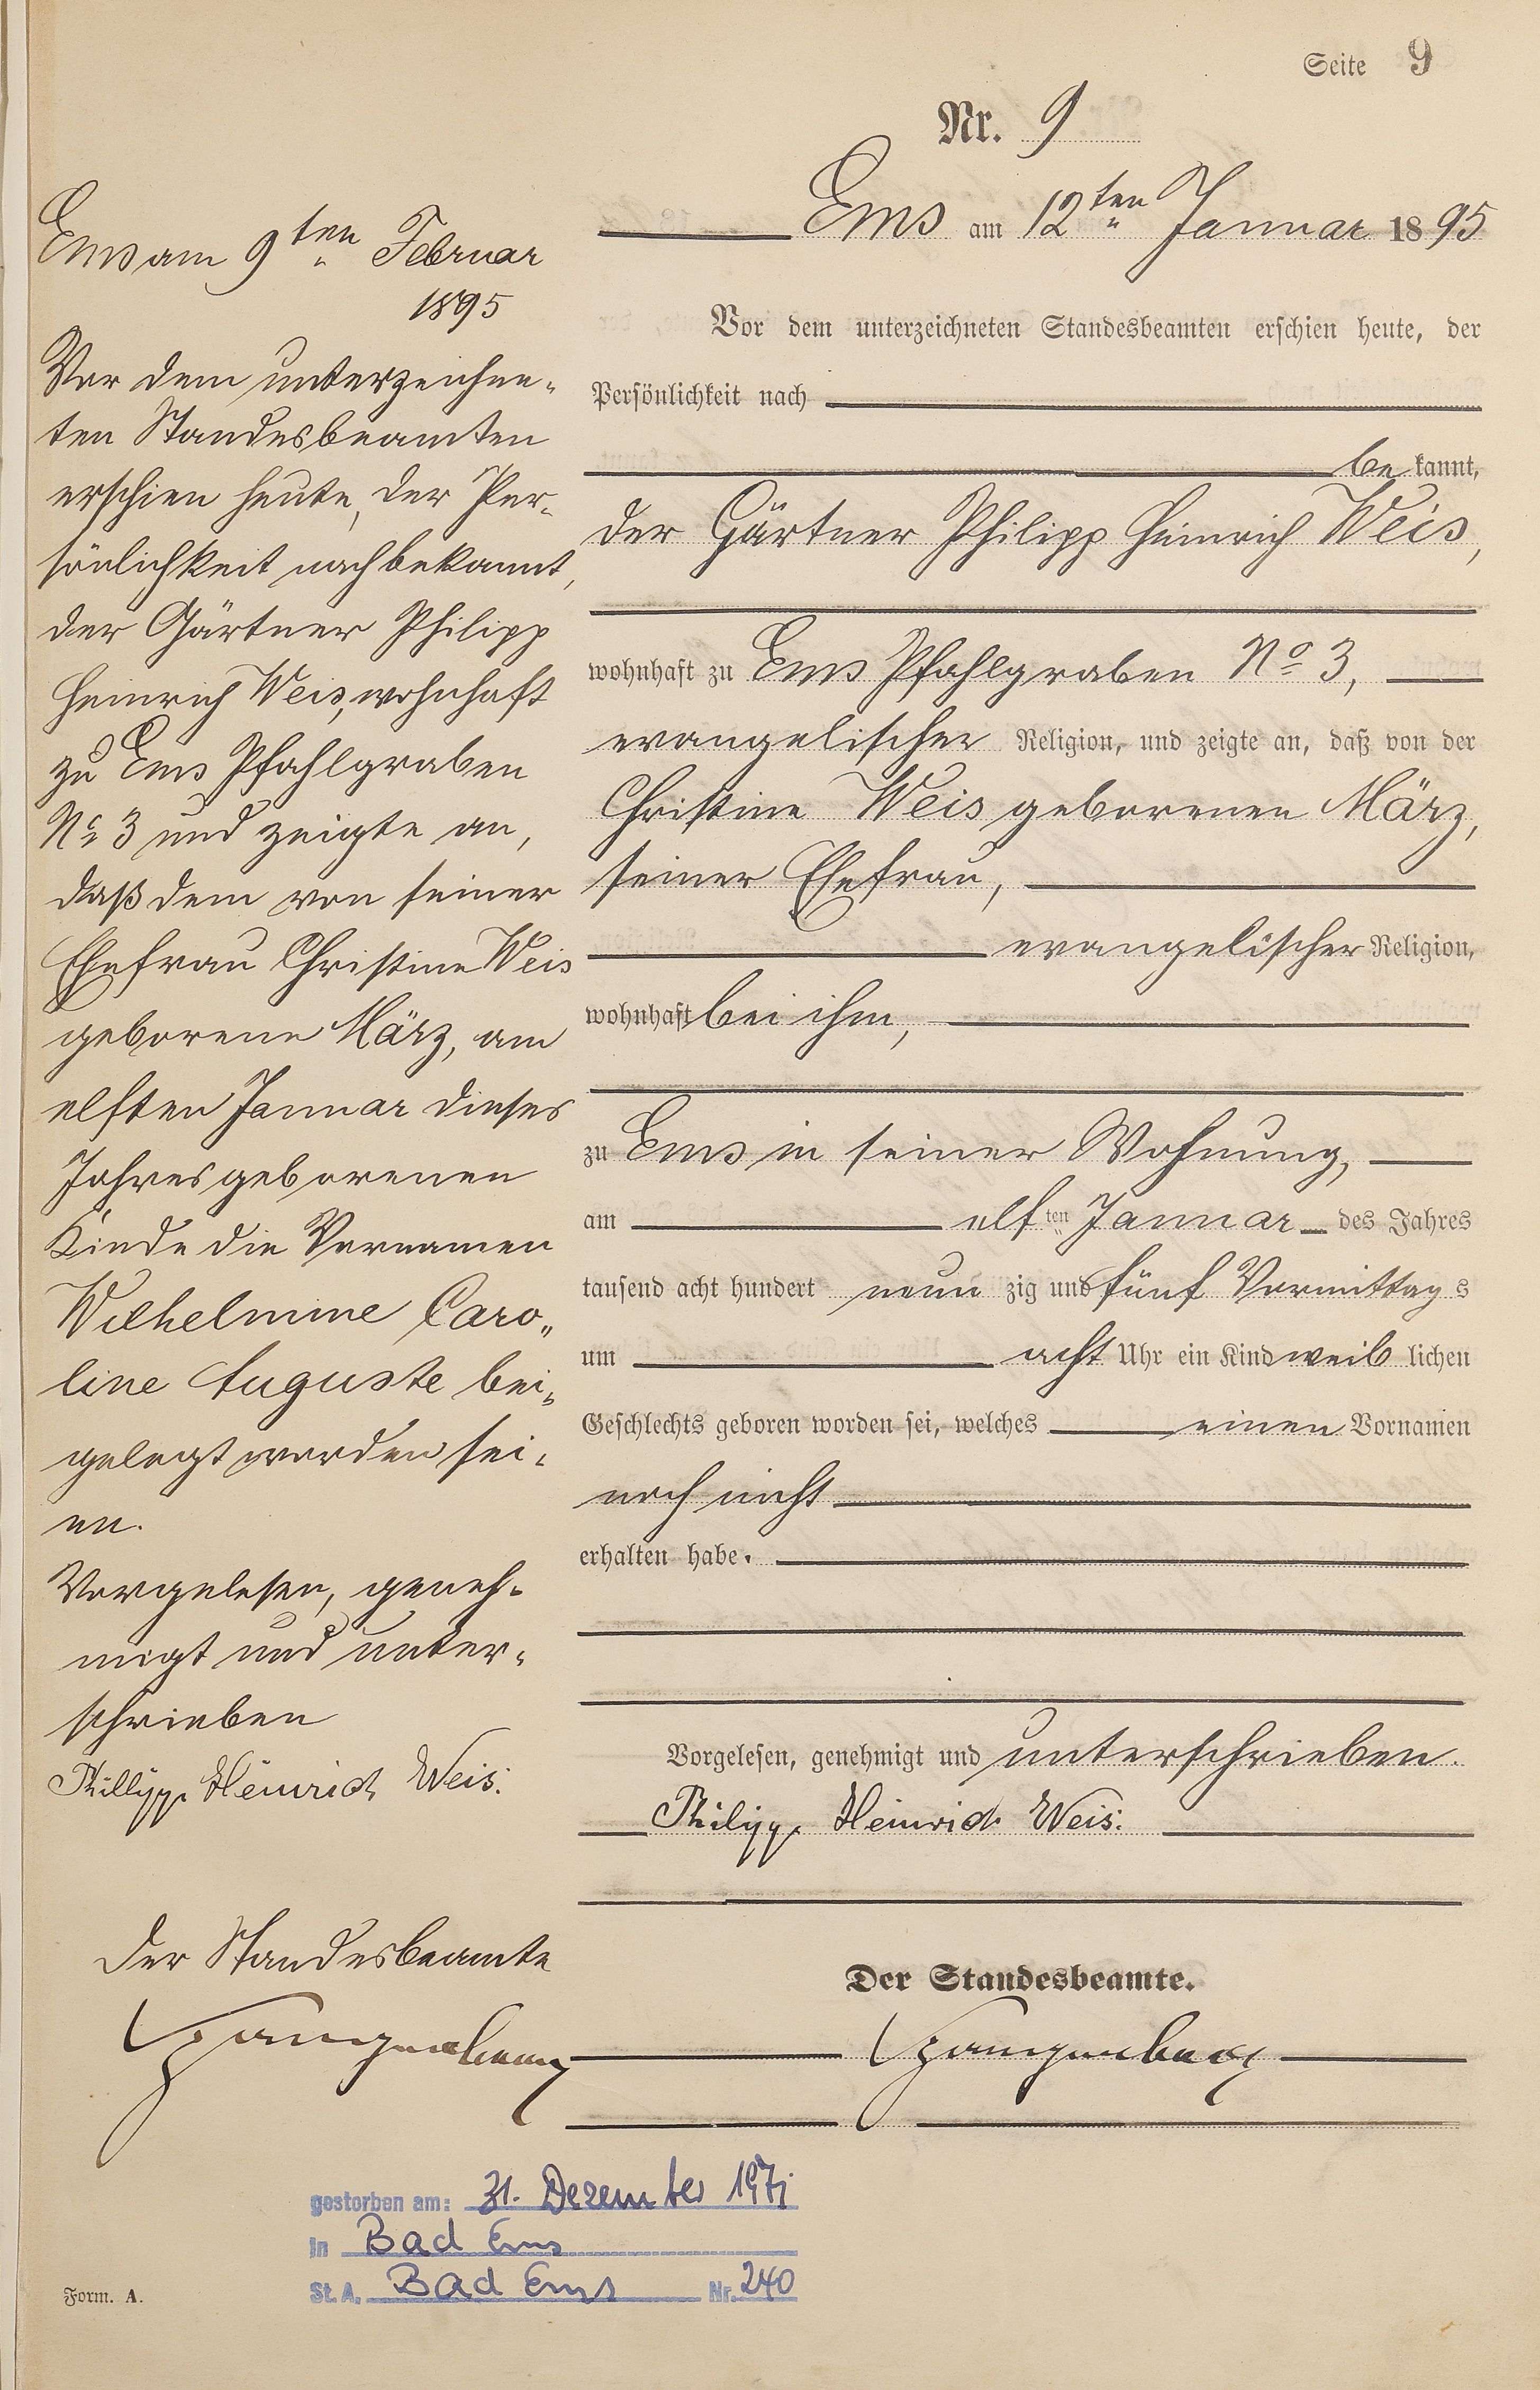 Seite 9
Nr. 9
Ems am 12ten Januar 1895
Vor dem unterzeichneten Standesbeamten erschien heute, der
Persönlichkeit nach
be kannt,
der Gärtner Philipp Heinrich Weis,
wohnhaft zu Ems Pfahlgraben No 3,
evangelischer Religion, und zeigte an, daß von der
Christine Weis geborenen März,
seiner Ehefrau,
evangelischer Religion,
wohnhaft bei ihm,
zu Ems in seiner Wohnung,
am elf ten Januar des Jahres
tausend acht hundert neun zig und fünf Vormittag s
um acht Uhr ein Kind weib lichen
Geschlechts geboren worden sei, welches einen Vornamen
noch nicht
erhalten habe.
Vorgelesen, genehmigt und unterschrieben.
Philipp Heinrich Weis.
Der Standesbeamte.
Ems am 9ten Februar
1895
Vor dem unterzeichne-
ten Standesbeamten
erschien heute, der Per-
sönlichkeit nach bekannt,
der Gärtner Philipp
Heinrich Weis, wohnhaft
zu Ems Pfahlgraben
No 3 und zeigte an,
daß dem von seiner
Ehefrau Christine Weis
geborene März, am
elften Januar dieses
Jahres geborenen
Kinde die Vornamen
Wilhelmine Caro-
line Auguste bei-
gelegt worden sei-
en.
Vorgelesen, geneh-
migt und unter-
schrieben
Phillipp Heinrich Weis.
Der Standesbeamte
gestorben am: 31. Dezember 1971
in Bad Ems
St. A. Bad Ems Nr. 240
Form. A.